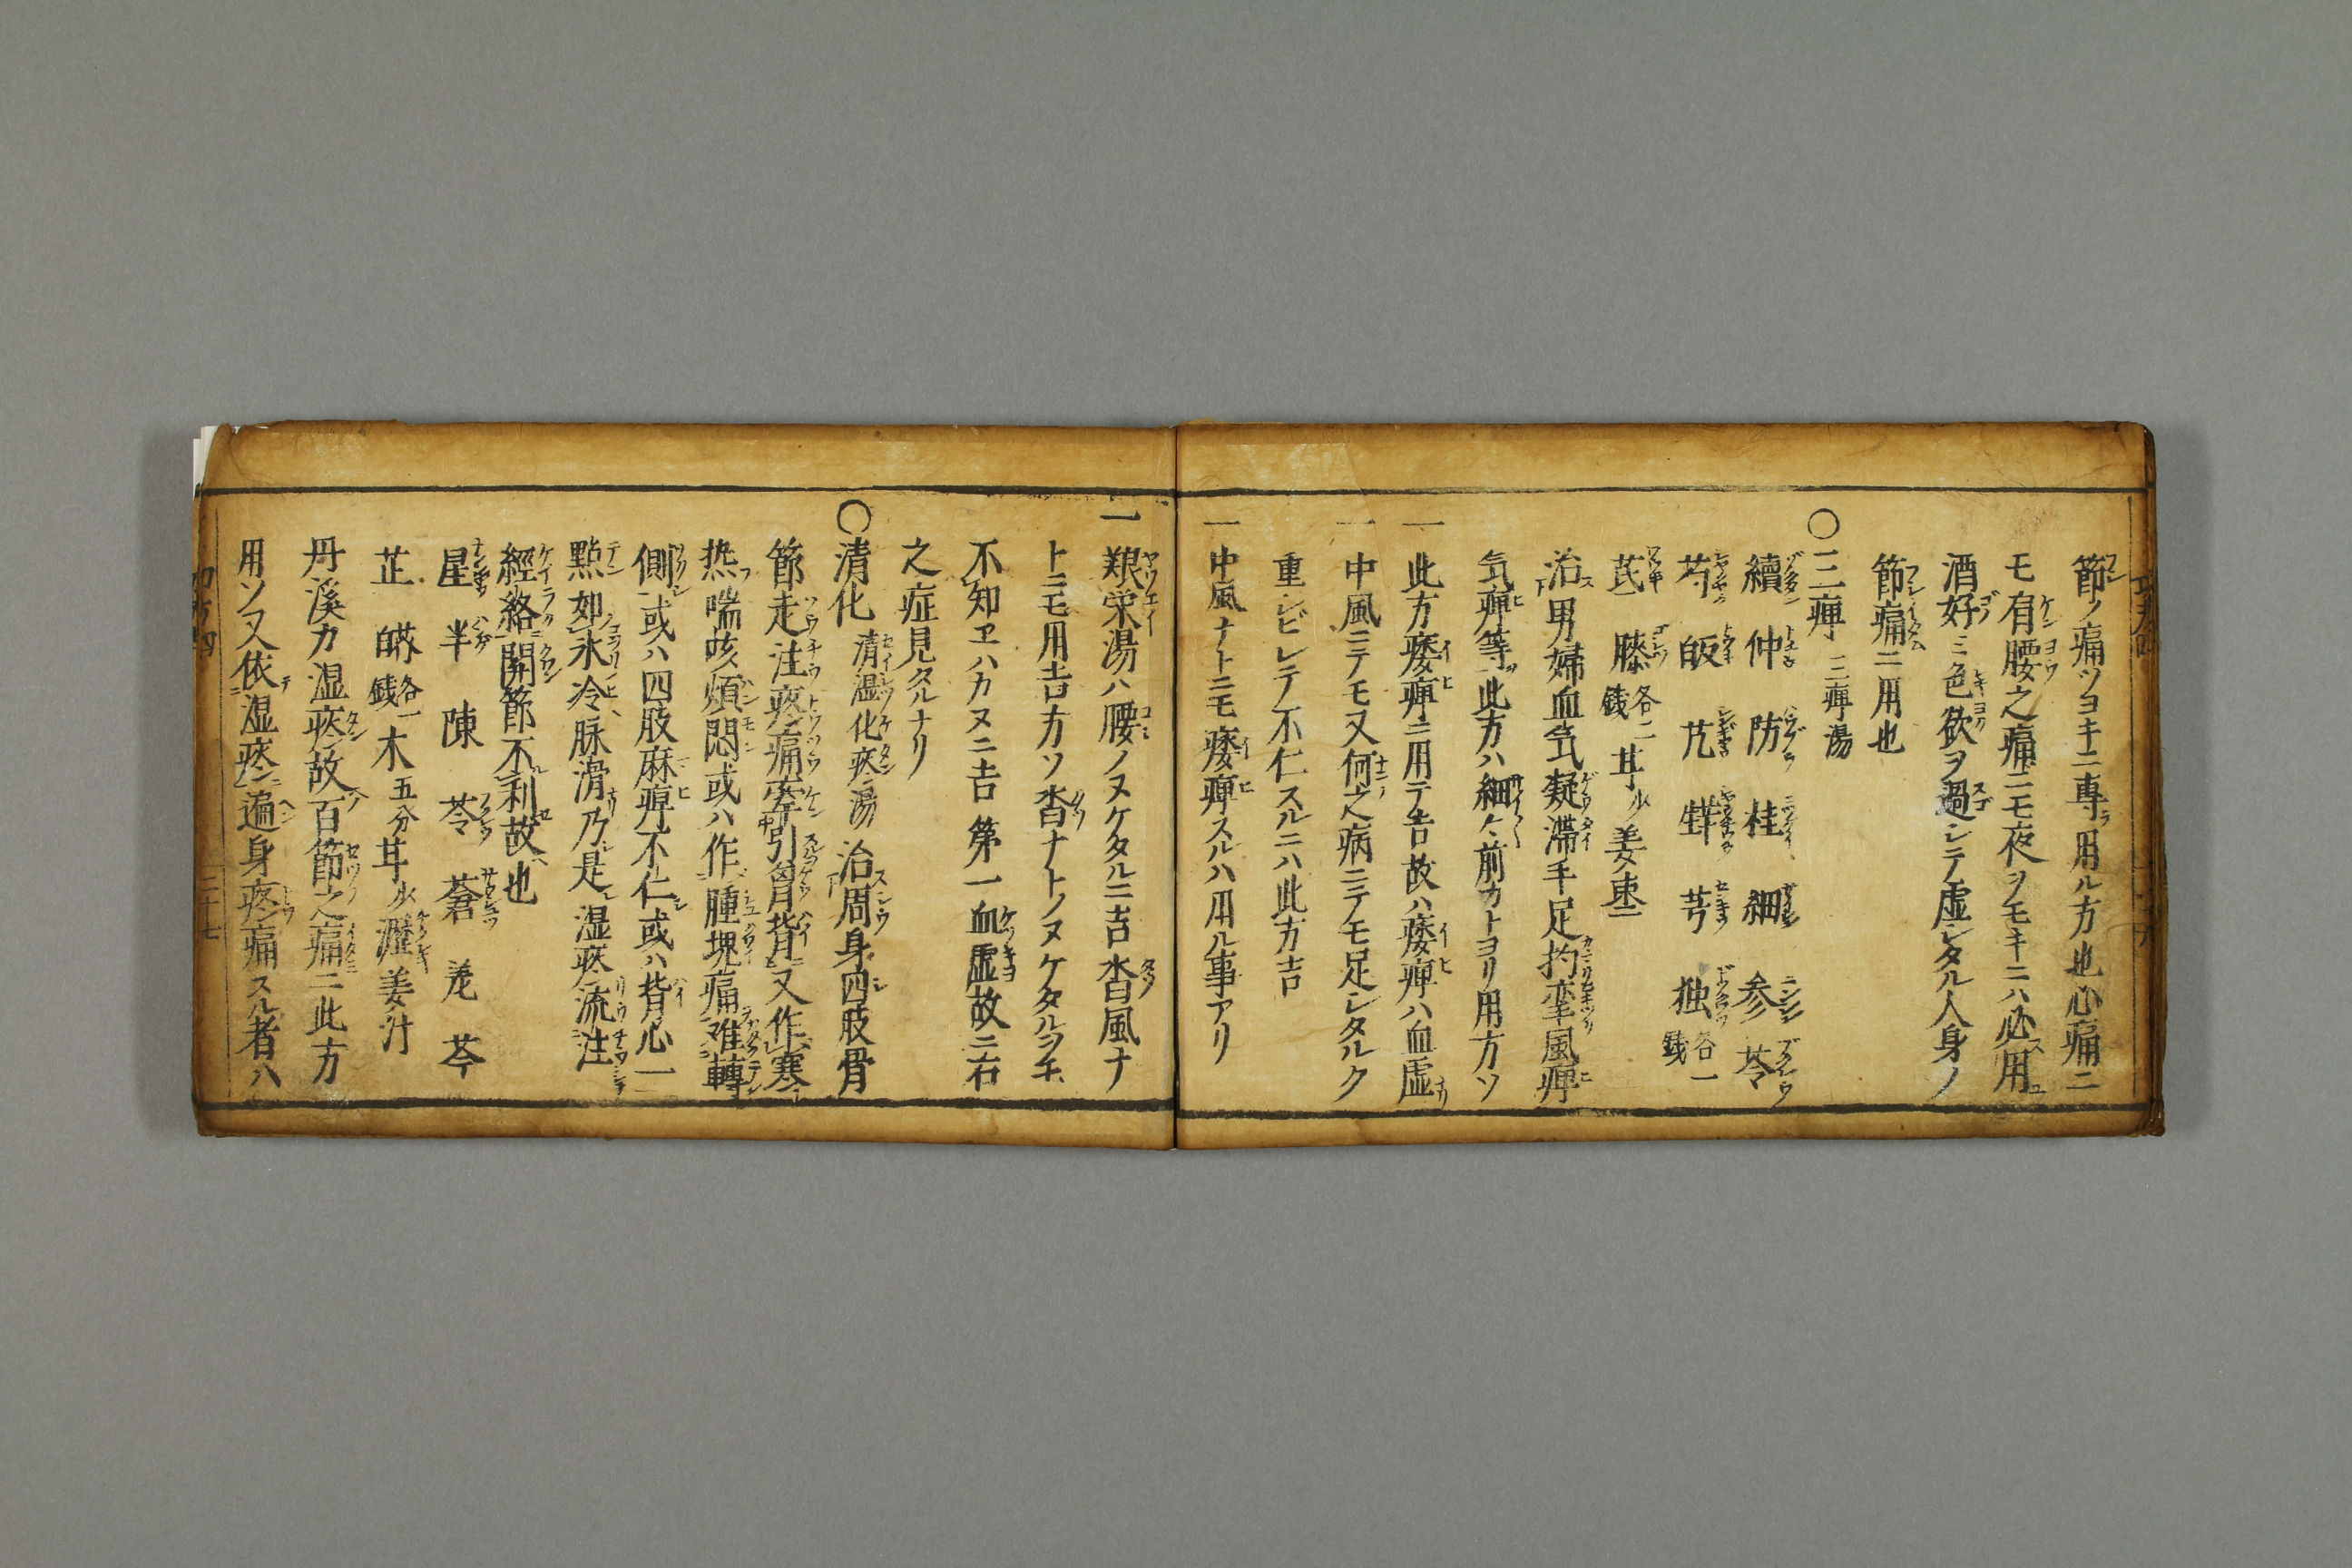 節ノ痛ツヨキニ專ラ用ル方也心痛ニ
モ有腰之痛ニモ夜ヲモキニハ必用
酒好ミ色欲ヲ過シテ虚シタル人身ノ
節痛ニ用也
〇三痺 三痺湯
續 仲 防 桂 細 参 苓
芍 皈 芁 芐 芎 独 各一銭
芪 膝 各二銭 甘 少 姜 枣
治男婦血気凝滞手足拘挛風痺
気痺等此方ハ細々前カトヨリ用方ソ
一此方痿痺ニ用テ吉故ハ痿痺ハ血虚
一中風ニテモ又何之病ニテモ足シタルク
重シビレテ不仁スルニハ此方吉
一中風ナトニモ痿痺スルハ用ル事アリ
一養栄湯ハ腰ノヌケタルニ吉沓風ナ
トニモ用吉方ソ沓ナトノヌケタルヲモ
不知ヱハカヌニ吉第一血虚故ニ右
之症見タルナリ
〇清化 清湿化痰湯 治周身四肢骨
節走注疼痛牽引胷背又作寒
热喘咳煩悶或ハ作腫塊痛难轉
側或ハ四肢麻痺不仁或ハ背心一
點如氷冷脉滑乃是湿痰流注
經絡関節不利故也
星 半 陳 苓 蒼 羗 芩
芷 各一銭 木 五分 甘 少 瀝 姜汁
丹溪カ湿痰故百節之痛ニ此方
用ソ又依湿痰遍身疼痛スル者ハ